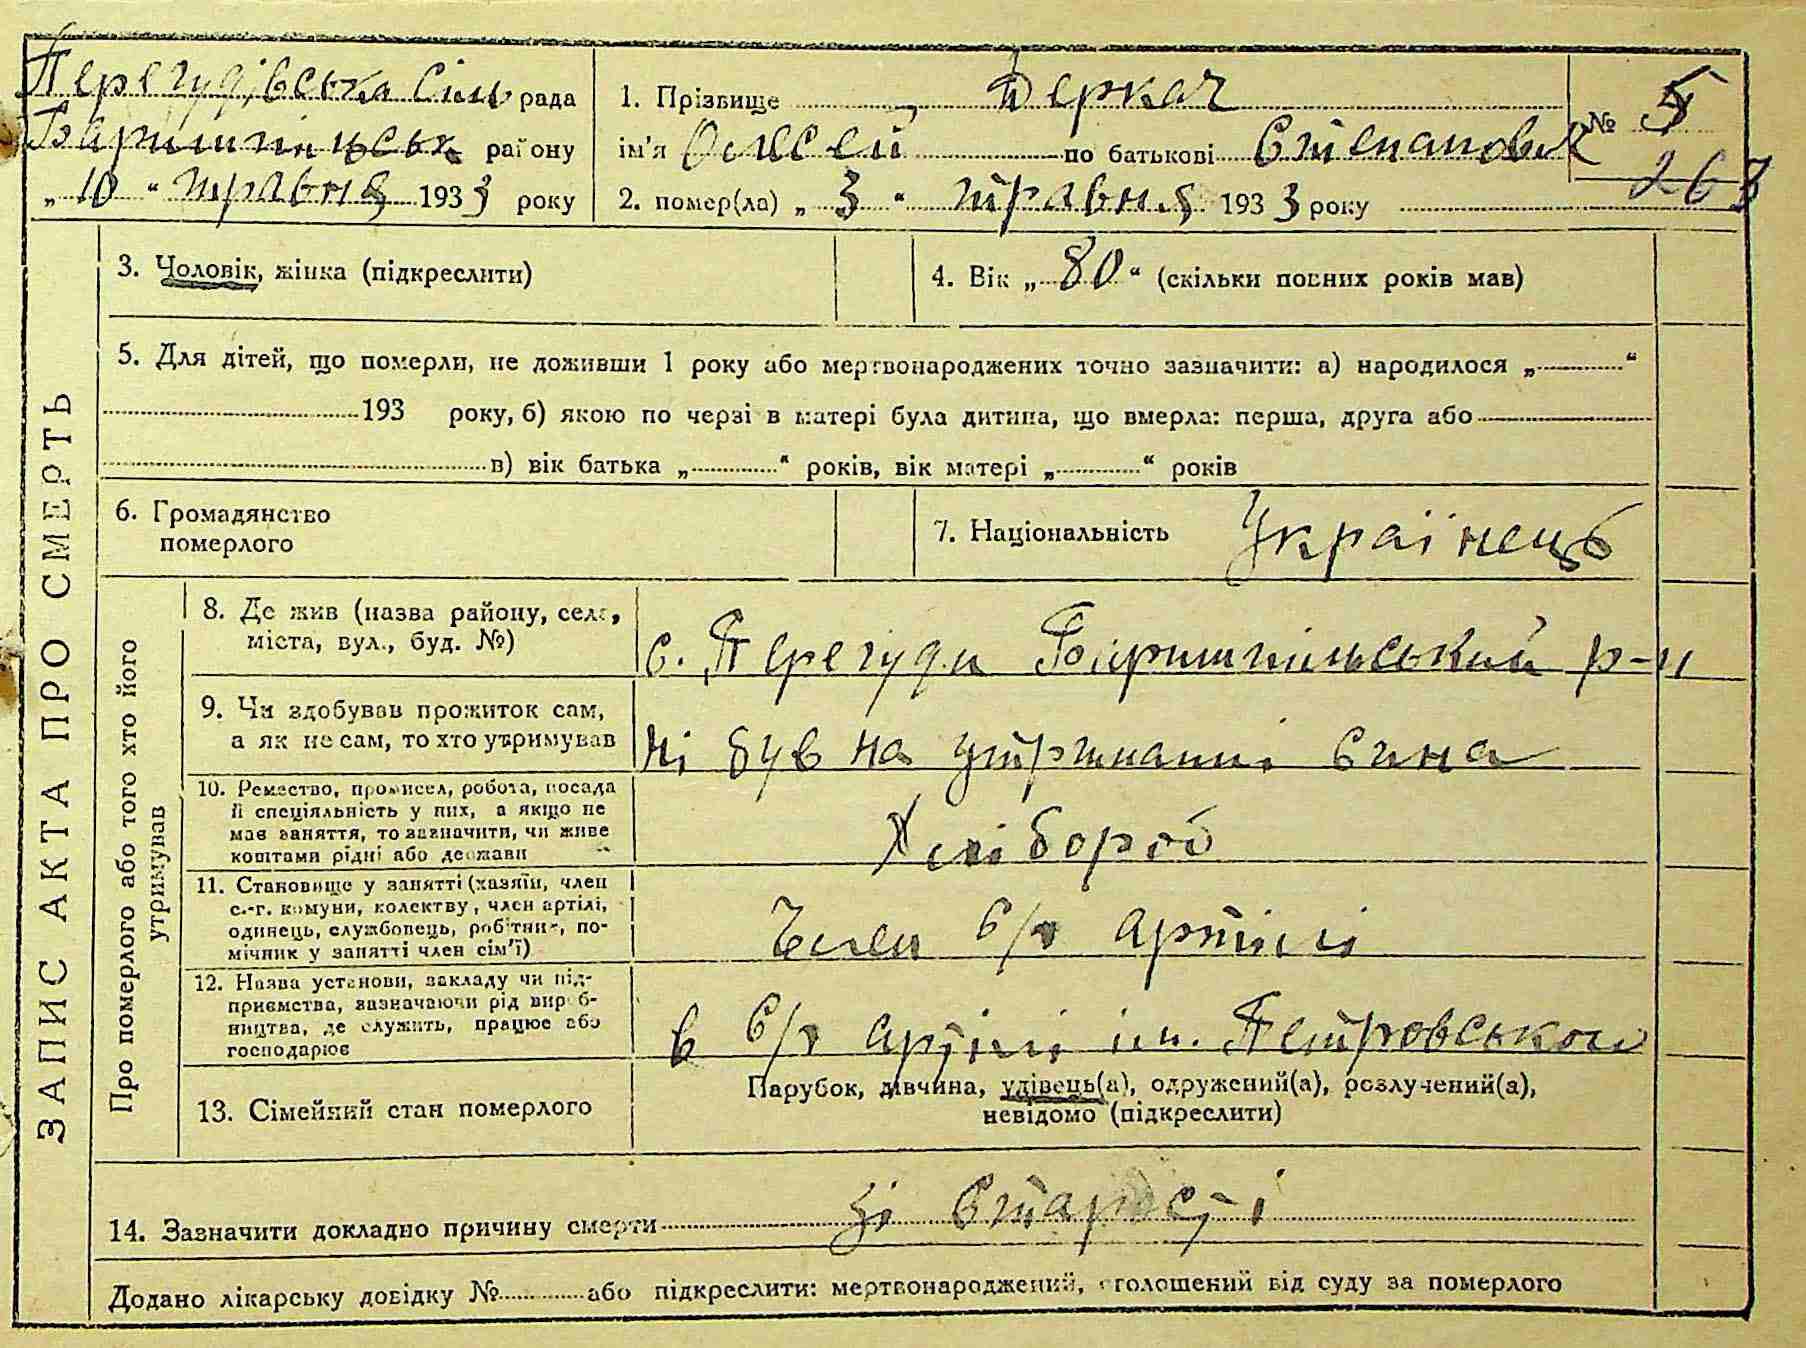 Перегудівська сіль рада
Баришпільськ району
„ 10 “ травня 1933 року
1. Прізвище Деркач
ім'я Олексей по батькові Степанович
2. помер(ла) „ 3 “ травня 1933 року
№ 5
263
ЗАПИС АКТА ПРО СМЕРТЬ
3. Чоловік, жінка (підкреслити)
4. Вік „ 80 “ (скільки повних років мав)
5. Для дітей, що померли, не доживши 1 року або мертвонароджених точно зазначити: а) народилося „ “
193 року, б) якою по черзі в матері була дитина, що вмерла: перша, друга або
в) вік батька „ “ років, вік матері „ “ років
6. Громадянство
померлого
7. Національність Українець
Про померлого або того хто його
утримував
8. Де жив (назва району, села,
міста, вул., буд. №)
с. Перегуди Баришпільський р-н
9. Чи здобував прожиток сам,
а як не сам, то хто утримував
ні був на утриманні сина
10. Ремество, промисел, робота, посада
й спеціяльність у них, а якщо не
має заняття, то зазначити, чи живе
коштами рідні або держави
Хлібороб
11. Становище у занятті (хазяїн, член
с.-г. комуни, колектву, член артілі,
одинець, службовець, робітник, по-
мічник у занятті член сім'ї)
Член с/г артілі
12. Назва установи, закладу чи під-
приємства, зазначаючи рід вироб-
ництва, де служить, працює або
господарює
в с/г артілі ім. Петровського
13. Сімейний стан померлого
Парубок, дівчина, удівець(а), одружений(а), розлучений(а),
невідомо (підкреслити)
14. Зазначити докладно причину смерти зі старості
Додано лікарську довідку № або підкреслити: мертвонароджений, оголошений від суду за померлого